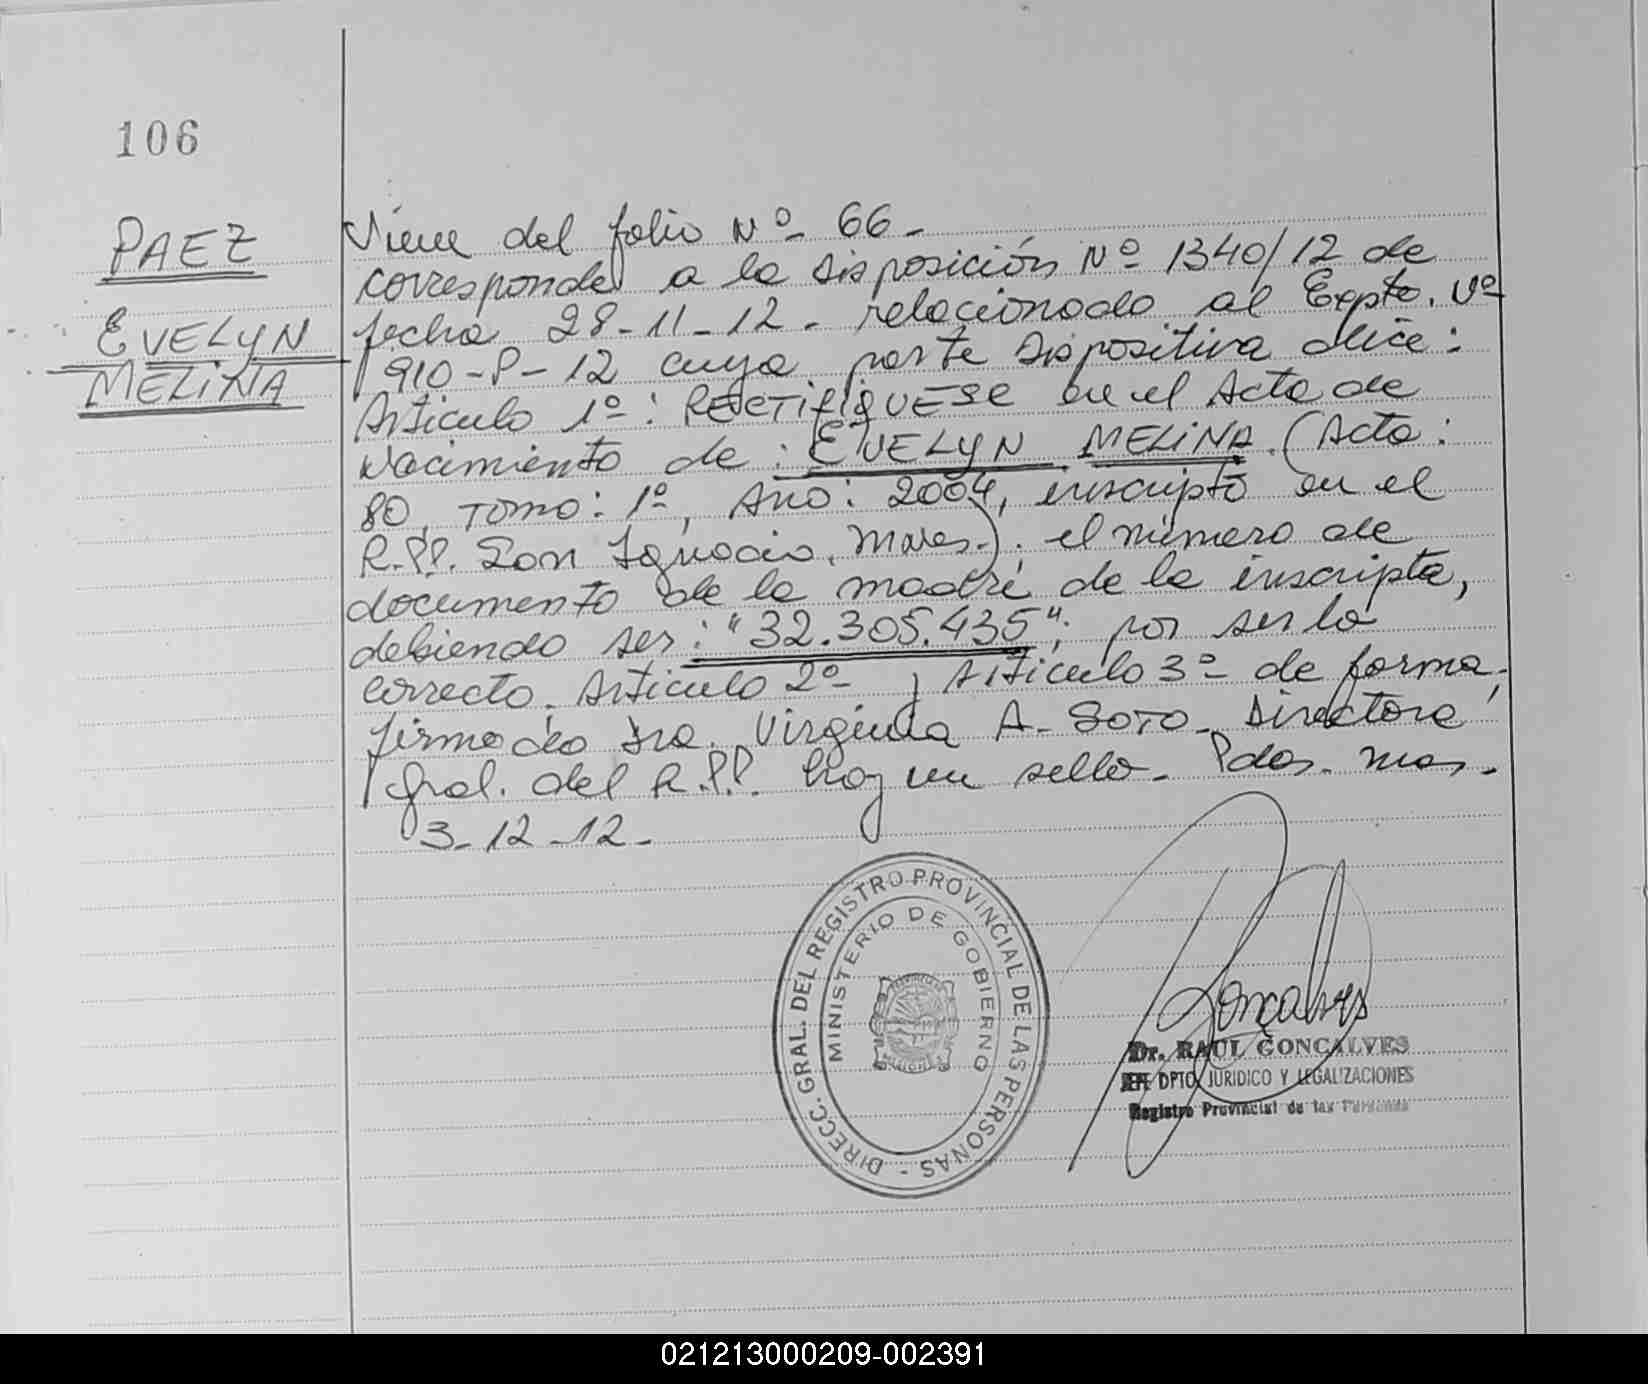 106
PAEZ
EVELYN
MELINA
Viene del folio Nº 66-
corresponde a la disposición Nº 1340/12 de
fecha 28-11-12. relacionado al Expte. Nº
910-P-12 cuya parte dispositiva dice:
Artículo 1º: RECTIFIQUESE en el Acta de
Nacimiento de: EVELYN MELINA. (Acta:
80, Tomo: 1º, Año: 2004, inscripta en el
R.P.P. San Ignacio, Mnes.). el número de
documento de la madre de la inscripta,
debiendo ser: "32.305.435"; por ser lo
correcto. Artículo 2º y Artículo 3º de forma,
firmado Dra. Virginia A. Soto- Directora
Gral. del R.P.P. hay un sello- Pdas. Mnes.
3-12-12-
DIRECC. GRAL. DEL REGISTRO PROVINCIAL DE LAS PERSONAS -
MINISTERIO DE GOBIERNO
MISIONES
Goncalves
Dr. RAUL GONCALVES
JEFE DPTO. JURIDICO Y LEGALIZACIONES
Registro Provincial de las Personas
021213000209-002391